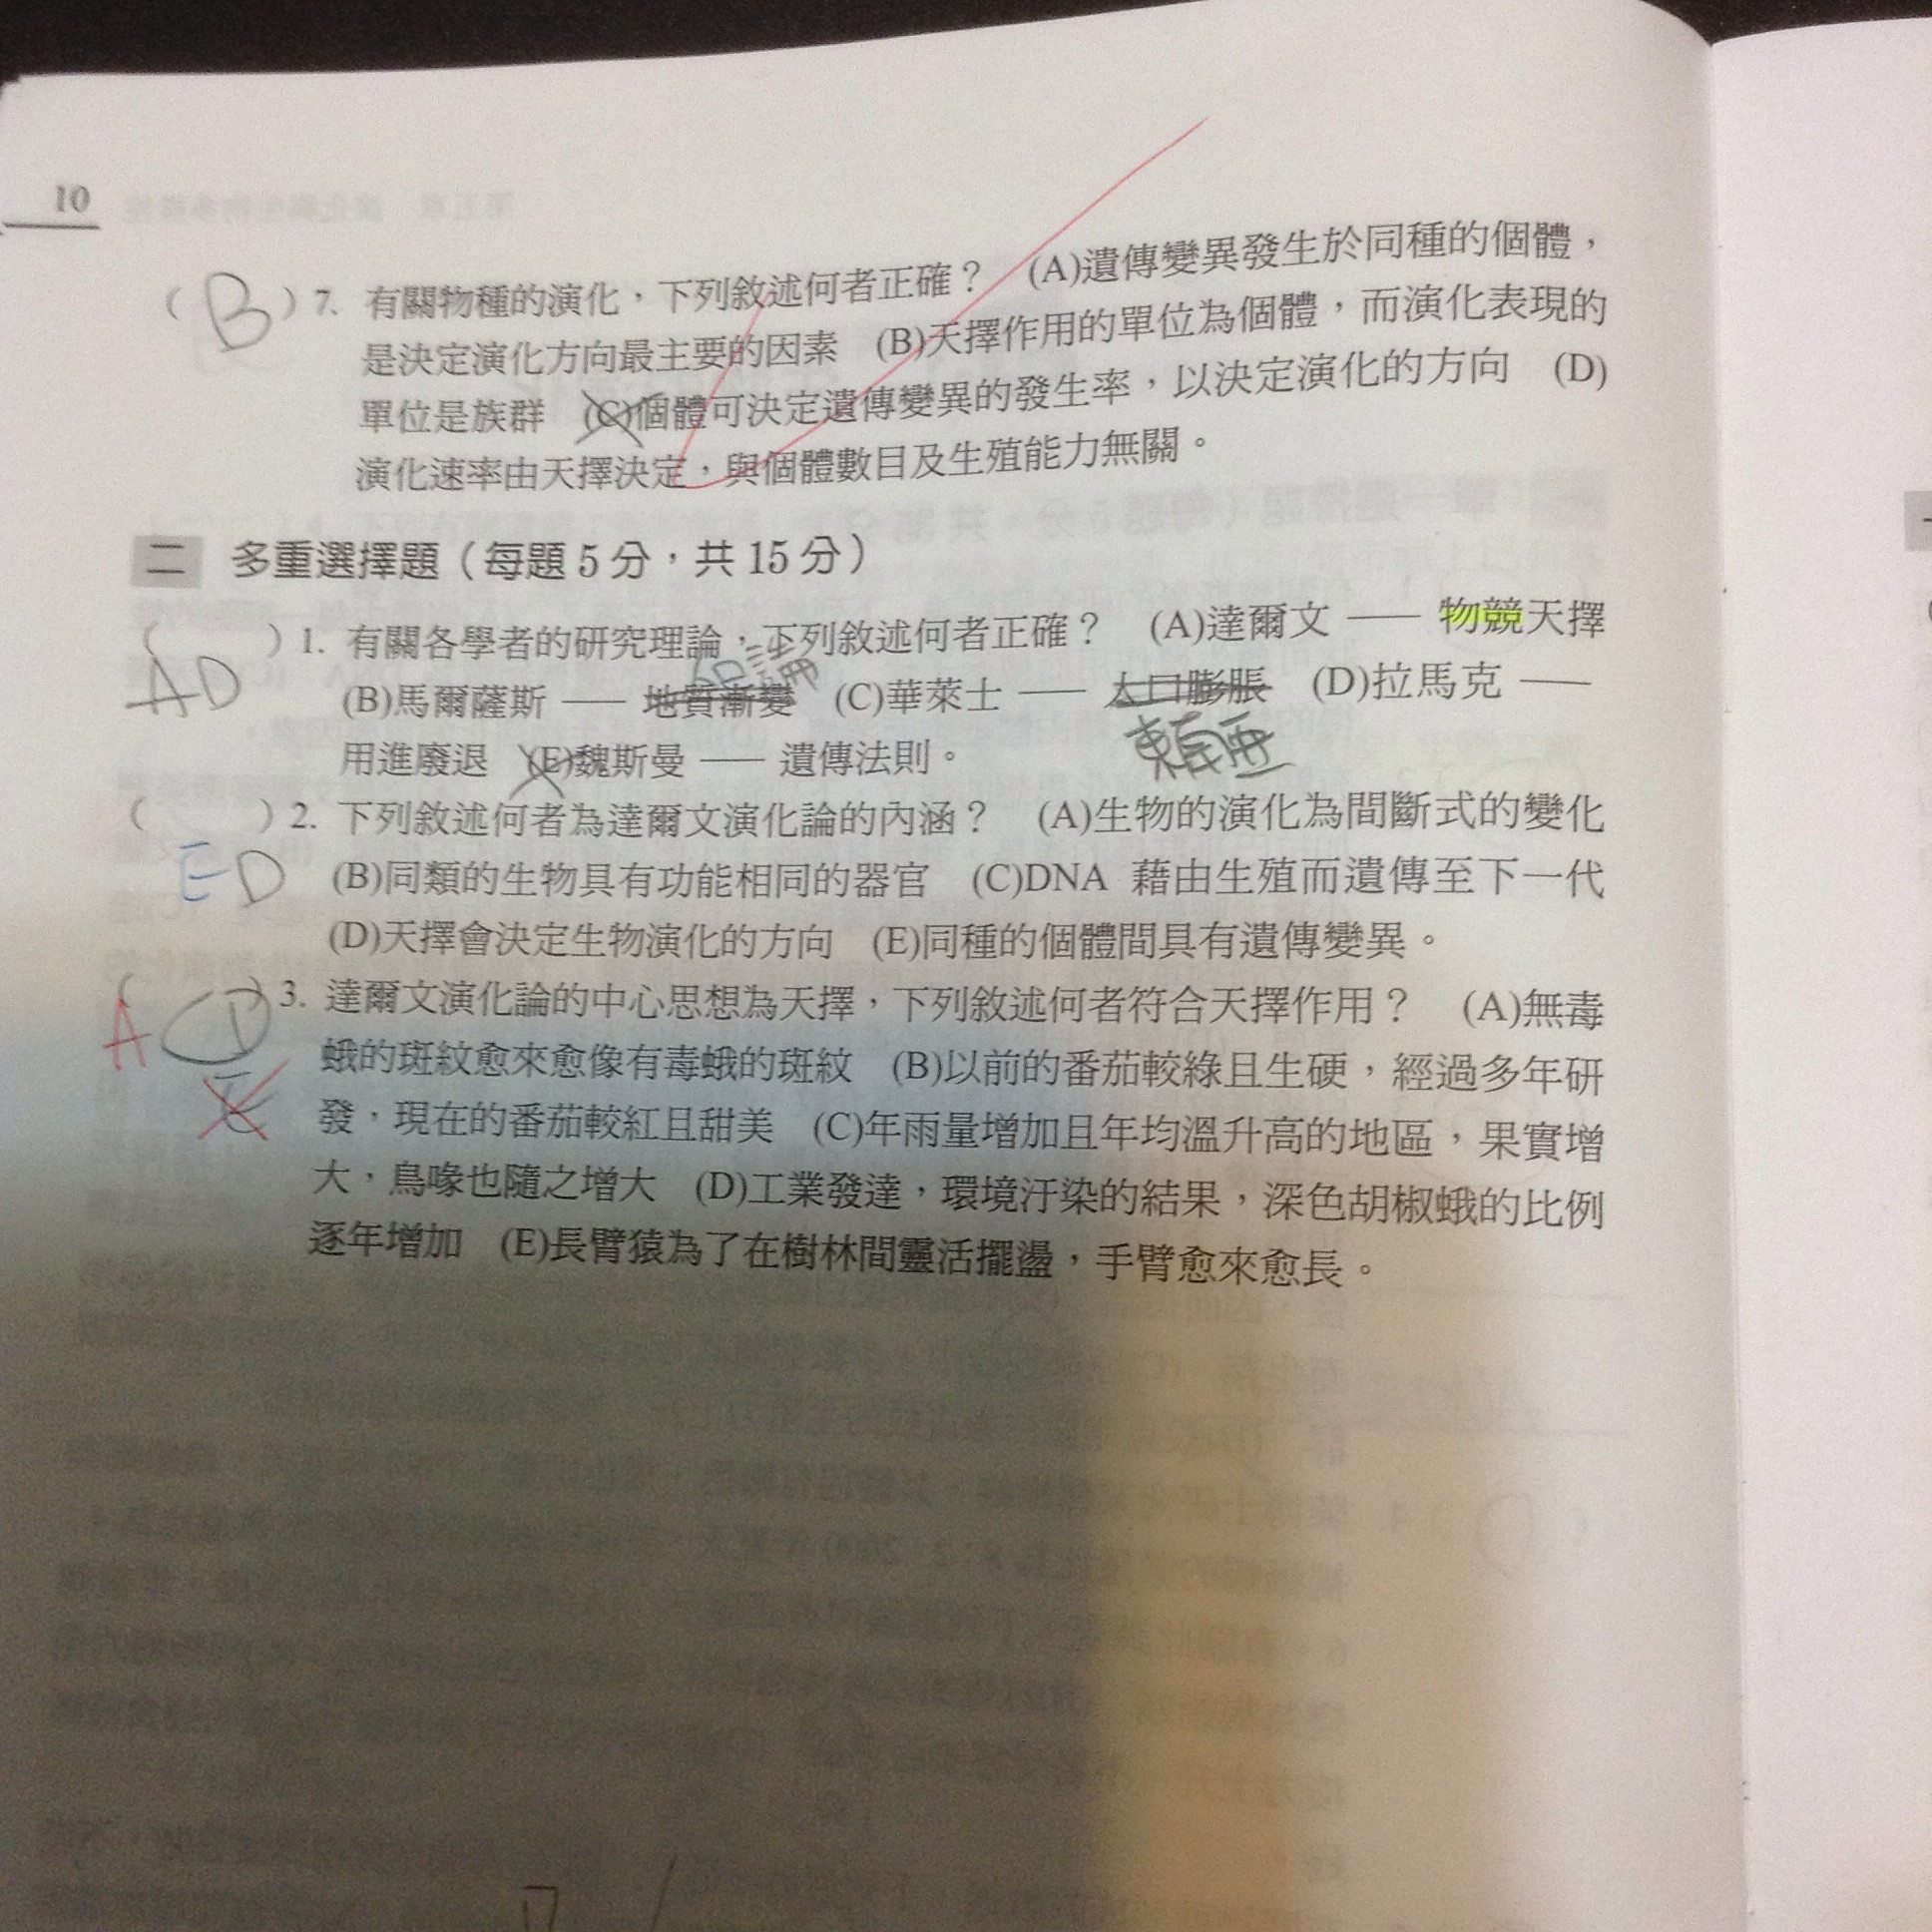 10
( B ) 7. 有關物種的演化，下列敘述何者正確？ (A)遺傳變異發生於同種的個體，
是決定演化方向最主要的因素 (B)天擇作用的單位為個體，而演化表現的
單位是族群 (C)個體可決定遺傳變異的發生率，以決定演化的方向 (D)
演化速率由天擇決定，與個體數目及生殖能力無關。
二 多重選擇題（每題5分，共15分）
( ) 1. 有關各學者的研究理論，下列敘述何者正確？ (A)達爾文 —— 物競天擇
AD
(B)馬爾薩斯 —— 地質漸變 (C)華萊士 —— 人口膨脹 (D)拉馬克 ——
用進廢退 (E)魏斯曼 —— 遺傳法則。
( ) 2. 下列敘述何者為達爾文演化論的內涵？ (A)生物的演化為間斷式的變化
ED
(B)同類的生物具有功能相同的器官 (C)DNA 藉由生殖而遺傳至下一代
(D)天擇會決定生物演化的方向 (E)同種的個體間具有遺傳變異。
A CD ( ) 3. 達爾文演化論的中心思想為天擇，下列敘述何者符合天擇作用？ (A)無毒
E
蛾的斑紋愈來愈像有毒蛾的斑紋 (B)以前的番茄較綠且生硬，經過多年研
發，現在的番茄較紅且甜美 (C)年雨量增加且年均溫升高的地區，果實增
大，鳥喙也隨之增大 (D)工業發達，環境汙染的結果，深色胡椒蛾的比例
逐年增加 (E)長臂猿為了在樹林間靈活擺盪，手臂愈來愈長。